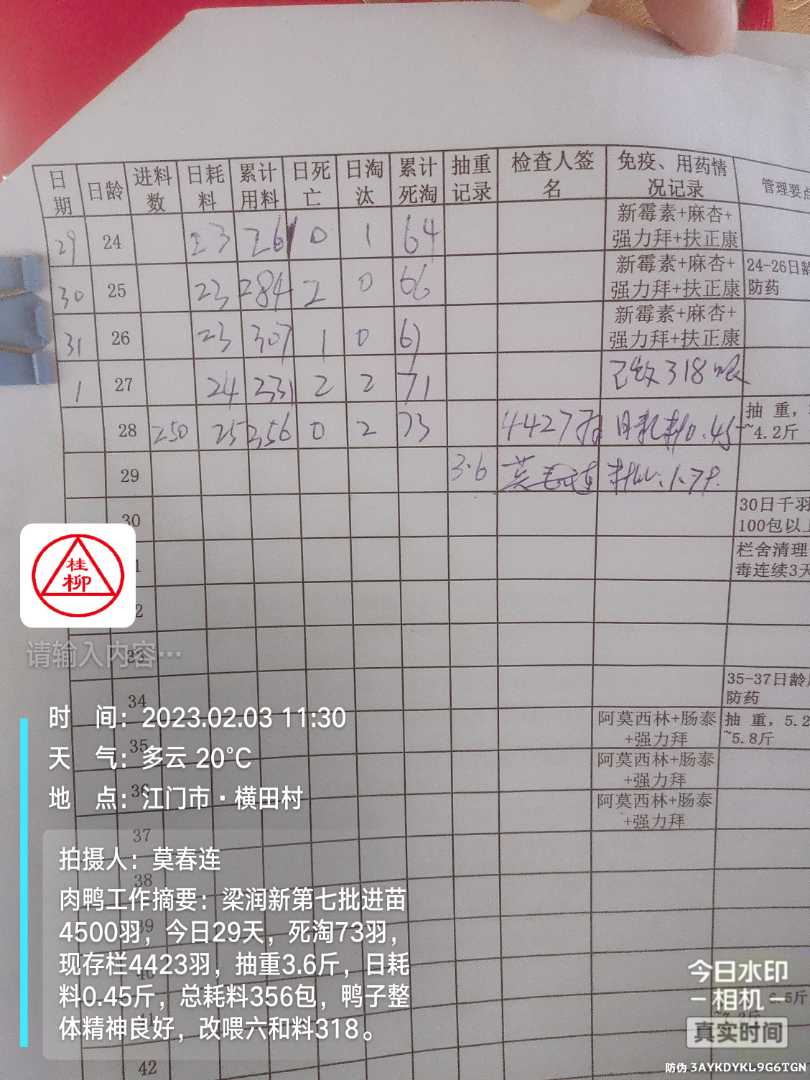 日期 日龄 进料数 日耗料 累计用料 日死亡 日淘汰 累计死淘 抽重记录 检查人签名 免疫、用药情况记录 管理要点
29 24 23 261 0 1 64 新霉素+麻杏+
强力拜+扶正康
30 25 23 284 2 0 66 新霉素+麻杏+
强力拜+扶正康 24-26日龄
防药
31 26 23 307 1 0 67 新霉素+麻杏+
强力拜+扶正康
1 27 24 331 2 2 71 已改318
28 250 25 356 0 2 73 4427羽 日耗料0.45 抽 重,
~4.2斤
29 3.6 莫春连
30 30日千羽
100包以上
栏舍清理
毒连续3天
33
34 35-37日龄
防药
35 阿莫西林+肠泰
+强力拜 抽 重,5.2
~5.8斤
36 阿莫西林+肠泰
+强力拜
37 阿莫西林+肠泰
+强力拜
38
39
40
41
42
桂柳
请输入内容…
时 间:2023.02.03 11:30
天 气:多云 20℃
地 点:江门市·横田村
拍摄人:莫春连
肉鸭工作摘要:梁润新第七批进苗
4500羽,今日29天,死淘73羽,
现存栏4423羽,抽重3.6斤,日耗
料0.45斤,总耗料356包,鸭子整
体精神良好,改喂六和料318。
今日水印
-相机-
真实时间
防伪 3AYKDYKL9G6TGN